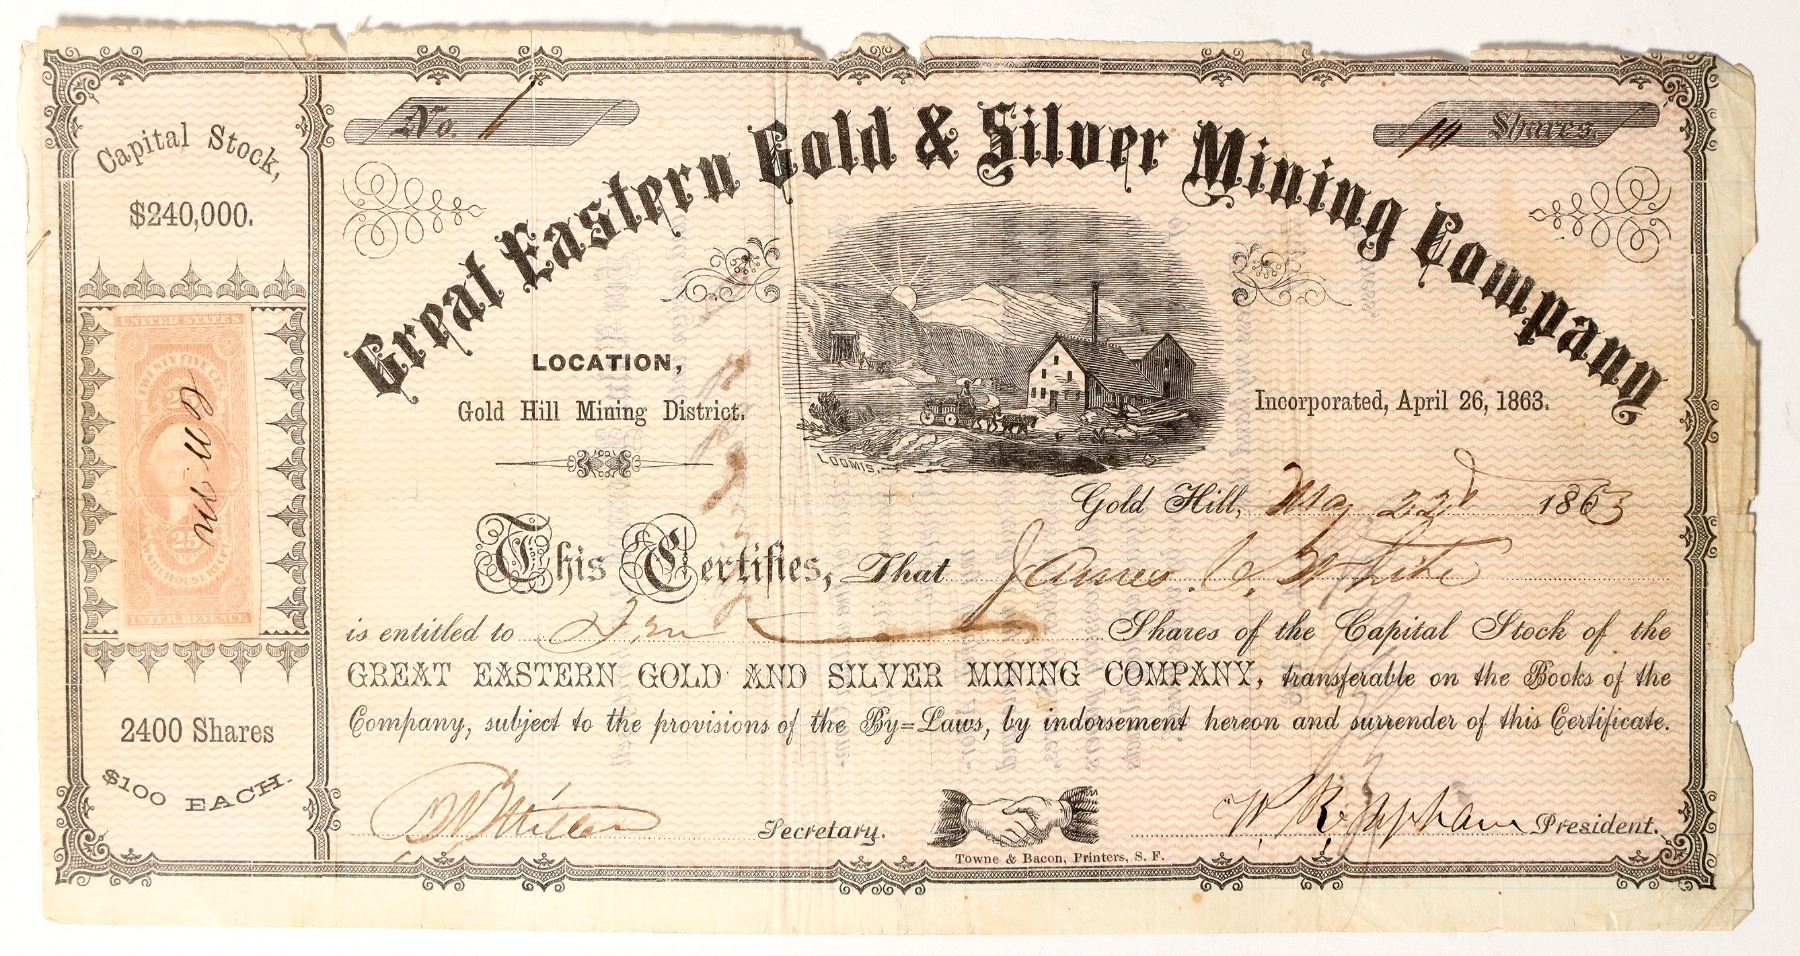 Capital Stock,
$240,000.
UNITED STATES
TWENTY FIVE CTS
25
WAREHOUSE RECEIPT
INTER. REVENUE
2400 Shares
$100 EACH.
No.
10 Shares.
Great Eastern Gold & Silver Mining Company
LOCATION,
Gold Hill Mining District.
Incorporated, April 26, 1863.
LOOMIS.
Gold Hill, May 22d 1863
This Certifies, That James White
is entitled to Ten Shares of the Capital Stock of the
GREAT EASTERN GOLD AND SILVER MINING COMPANY, transferable on the Books of the
Company, subject to the provisions of the By=Laws, by indorsement hereon and surrender of this Certificate.
Secretary.
President.
Towne & Bacon, Printers, S. F.